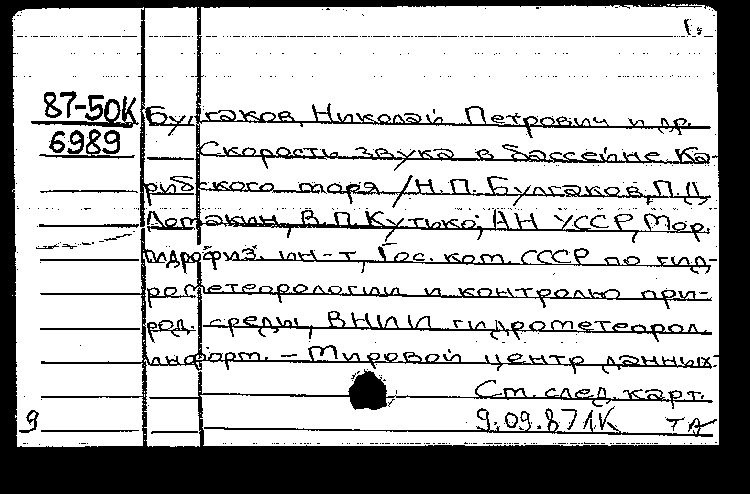 Г.
87-50К
6989
Булгаков, Николай Петрович и др.
Скорость звука в бассейне Ка-
рибского моря / Н.П. Булгаков, П.Д.
Ломакин, В.П. Кутько; АН УССР, Мор.
гидрофиз. ин-т, Гос. ком. СССР по гид-
рометеорологии и контролю при-
род. среды, ВНИИ гидрометеорол.
информ. – Мировой центр данных.
Ст. след. карт.
9
9.09.87 1К